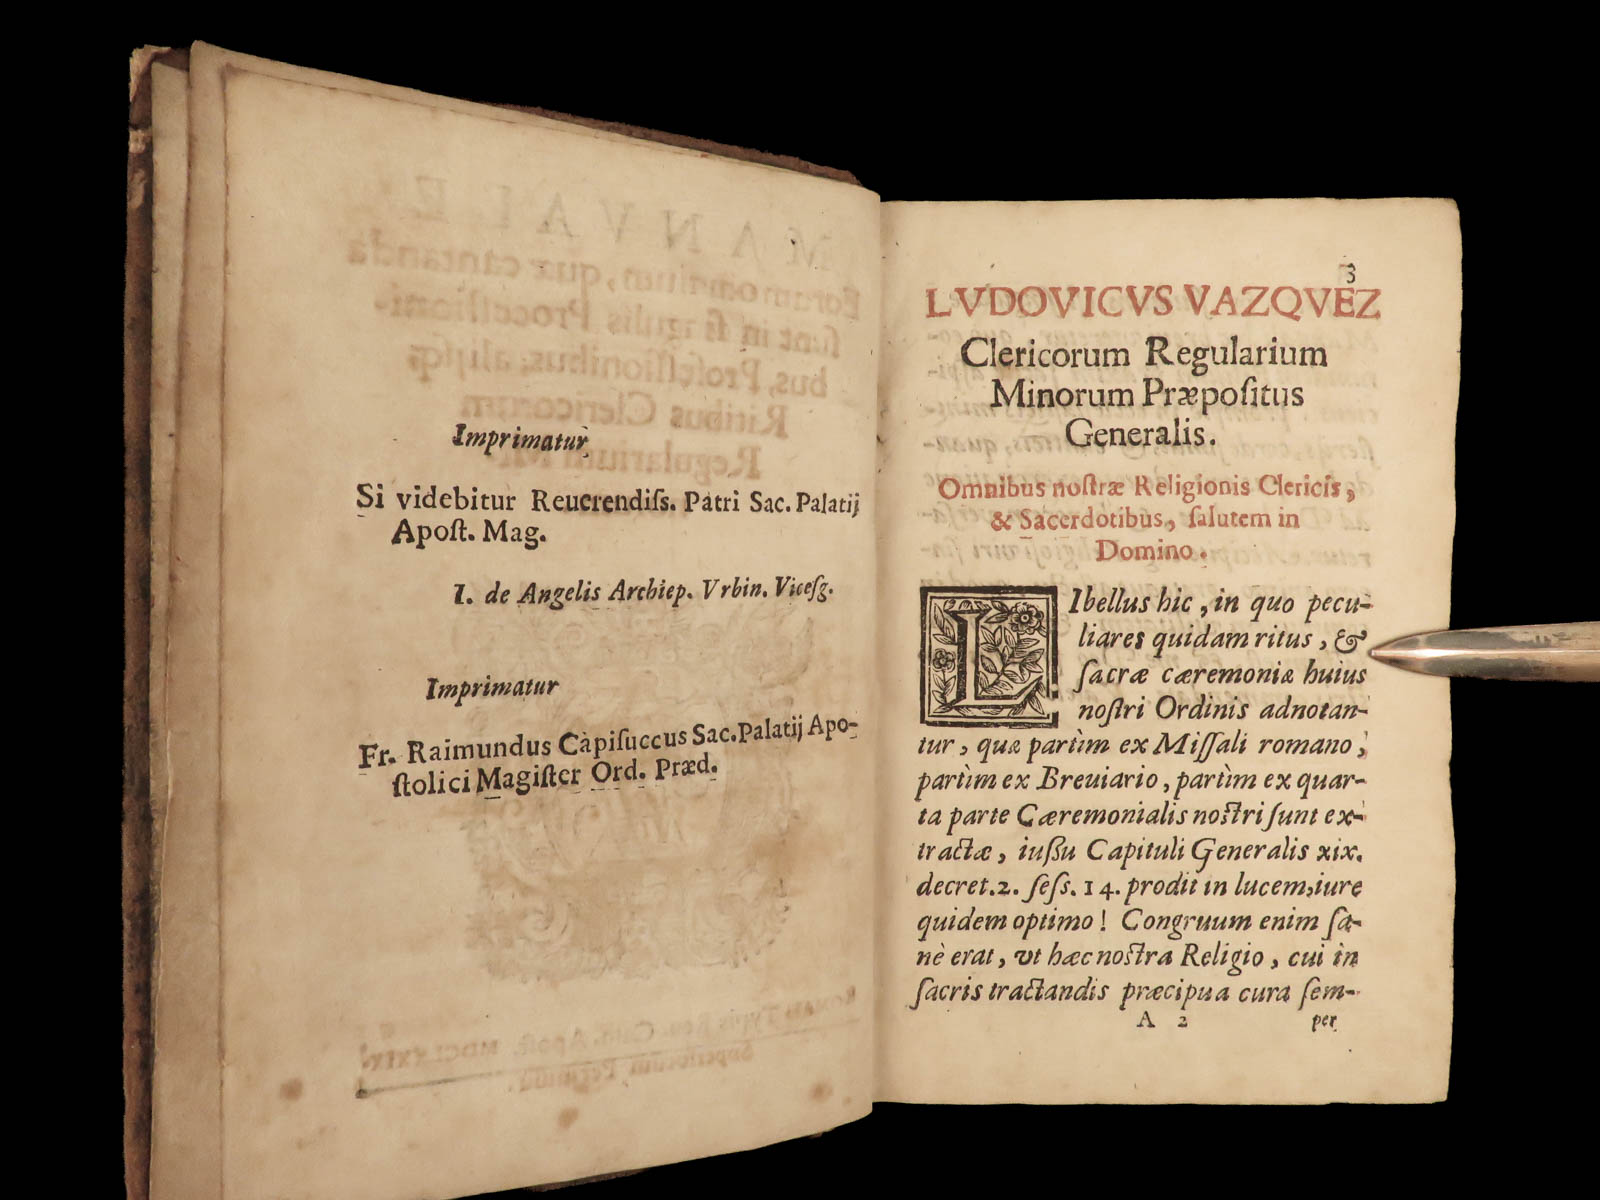 Imprimatur
Si videbitur Reuerendiſs. Patri Sac. Palatij
Apoſt. Mag.
I. de Angelis Archiep. Vrbin. Viceſg.
Imprimatur
Fr. Raimundus Capiſuccus Sac. Palatij Apo-
ſtolici Magiſter Ord. Præd.
3
LVDOVICVS VAZQVEZ
Clericorum Regularium
Minorum Præpoſitus
Generalis.
Omnibus noſtræ Religionis Clericis,
& Sacerdotibus, ſalutem in
Domino.
LIbellus hic, in quo pecu-
liares quidam ritus, &
ſacræ cæremoniæ huius
noſtri Ordinis adnotan-
tur, quæ partìm ex Miſſali romano,
partìm ex Breuiario, partìm ex quar-
ta parte Cæremonialis noſtri ſunt ex-
tractæ, iuſsu Capituli Generalis xix.
decret. 2. ſeſs. 14. prodit in lucem, iure
quidem optimo! Congruum enim ſa-
nè erat, vt hæc noſtra Religio, cui in
ſacris tractandis præcipua cura ſem-
A 2 per